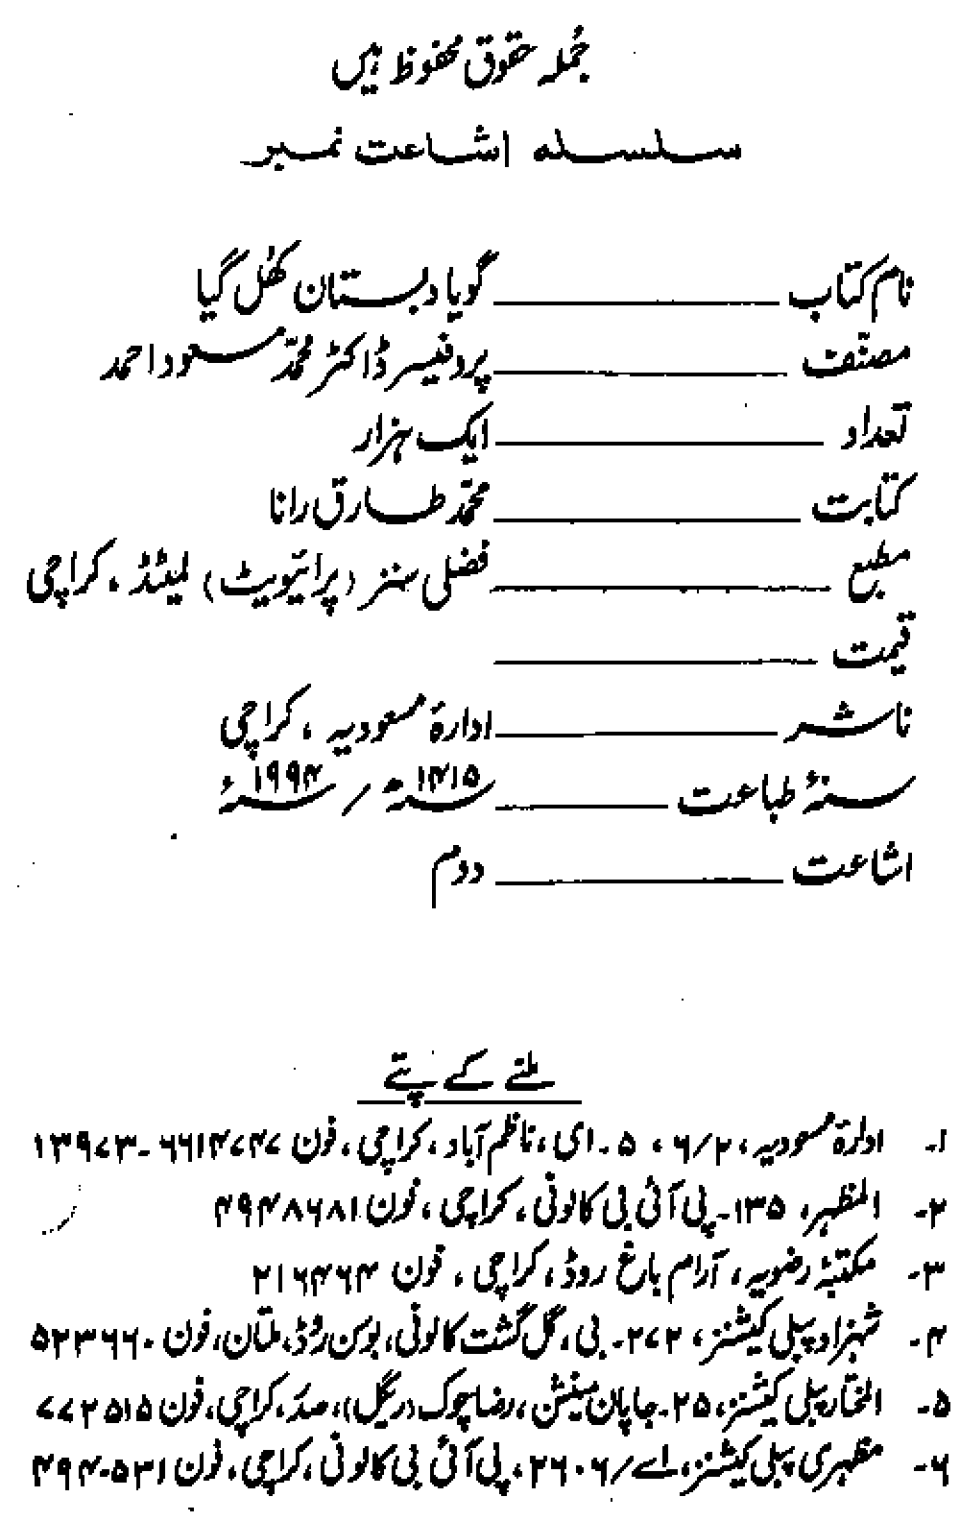 جُملہ حقوق محفوظ ہیں
سلسلہ اشاعت نمبر
نام کتاب ـــــــــ گویا دبستان کھُل گیا
مصنف ـــــــــ پروفیسر ڈاکٹر محمّد مسعود احمد
تعداد ـــــــــ ایک ہزار
کتابت ـــــــــ محمّد طارق رانا
مطبع ـــــــــ فضلی سنز (پرائیویٹ) لمیٹڈ، کراچی
قیمت ـــــــــ
ناشر ـــــــــ ادارۂ مسعودیہ، کراچی
سنۂ طباعت ـــــــــ ۱۴۱۵ھ / ۱۹۹۴ء
اشاعت ـــــــــ دوم
ملنے کے پتے
۱۔ ادارۂ مسعودیہ، ۶/۲، ۵۔ای، ناظم آباد، کراچی، فون ۶۶۱۴۷۴۷۔
۲۔ المظہر، ۱۳۵۔پی آئی بی کالونی، کراچی، فون ۴۹۴۸۶۸۱
۳۔ مکتبۂ رضویہ، آرام باغ روڈ، کراچی، فون ۲۱۶۴۶۴
۴۔ شہزاد پبلی کیشنز، ۲۷۲۔بی، گل گشت کالونی، بوسن روڈ، ملتان، فون ۵۲۳۶۶۰
۵۔ المختار پبلی کیشنز، ۲۵۔جاپان مینشن، رضا چوک (ریگل)، صدر، کراچی، فون ۷۷۲۵۱۵
۶۔ مظہری پبلی کیشنز، اے/۲۶۰۶، پی آئی بی کالونی، کراچی، فون ۴۹۴۰۵۳۱